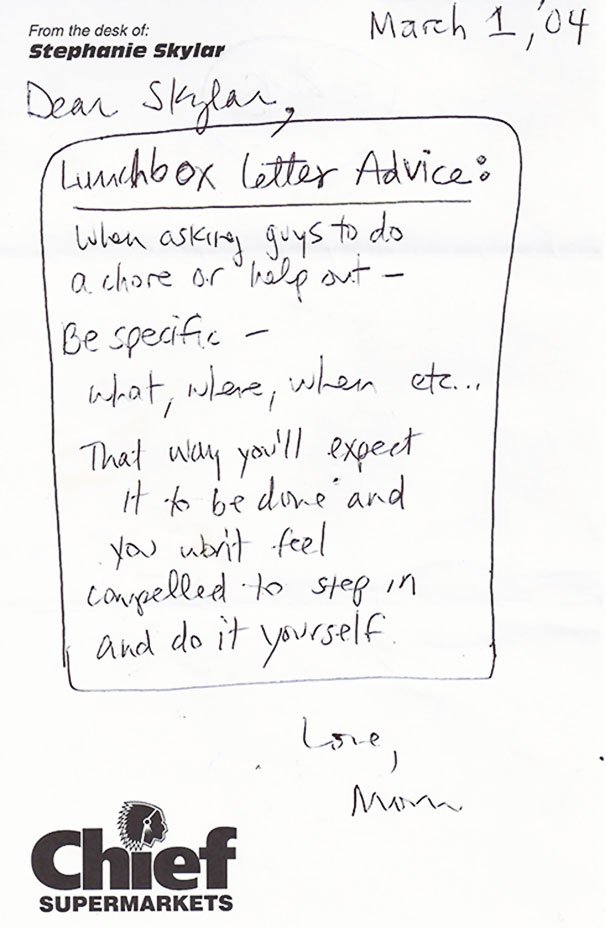 From the desk of:
Stephanie Skylar
March 1, '04
Dear Skylar,
Lunchbox Letter Advice:
When asking guys to do
a chore or help out –
Be specific –
what, where, when etc...
That way you'll expect
it to be done and
you won't feel
compelled to step in
and do it yourself.
Love,
Mom
Chief
SUPERMARKETS